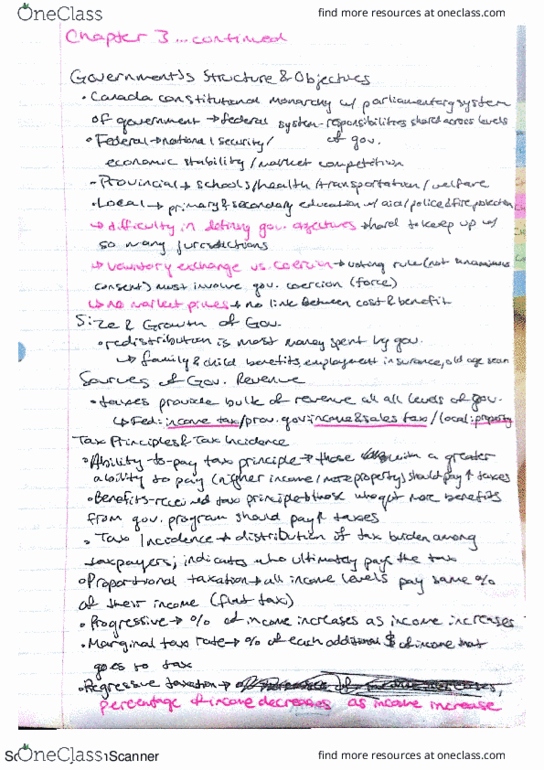 OneClass
find more resources at oneclass.com
Chapter 3 ... continued
Government's Structure & Objectives
• Canada constitutional monarchy w/ parliamentary system
of government → federal system - responsibilities shared across levels
of gov.
• Federal → national security/
economic stability/market competition
• Provincial → schools/health/transportation/welfare
• Local → primary & secondary education w/ aid/police & fire protection
↳ difficulty in defining gov. objectives → hard to keep up w/
so many jurisdictions
↳ voluntary exchange vs. coercion → voting rule (not unanimous
consent) must involve gov. coercion (force)
↳ no market prices → no link between cost & benefit
Size & Growth of Gov.
• redistribution is most money spent by gov.
↳ family & child benefits, employment insurance, old age
Sources of Gov. Revenue
• taxes provide bulk of revenue all all levels of gov.
↳ Fed: income tax/prov. gov: income & sales tax/local: property
Tax Principles & Tax Incidence
• Ability-to-pay tax principle → those with a greater
ability to pay (higher income/more property) should pay ↑ taxes
• Benefits-received tax principle → those who get more benefits
from gov. program should pay ↑ taxes
• Tax Incidence → distribution of tax burden among
taxpayers; indicates who ultimately pays the tax
• Proportional taxation → all income levels pay same %
of their income (flat tax)
• Progressive → % of income increases as income increases
• Marginal tax rate → % of each additional $ of income that
goes to tax
• Regressive taxation →
percentage of income decreases as income increase
OneClass
Scanner
find more resources at oneclass.com